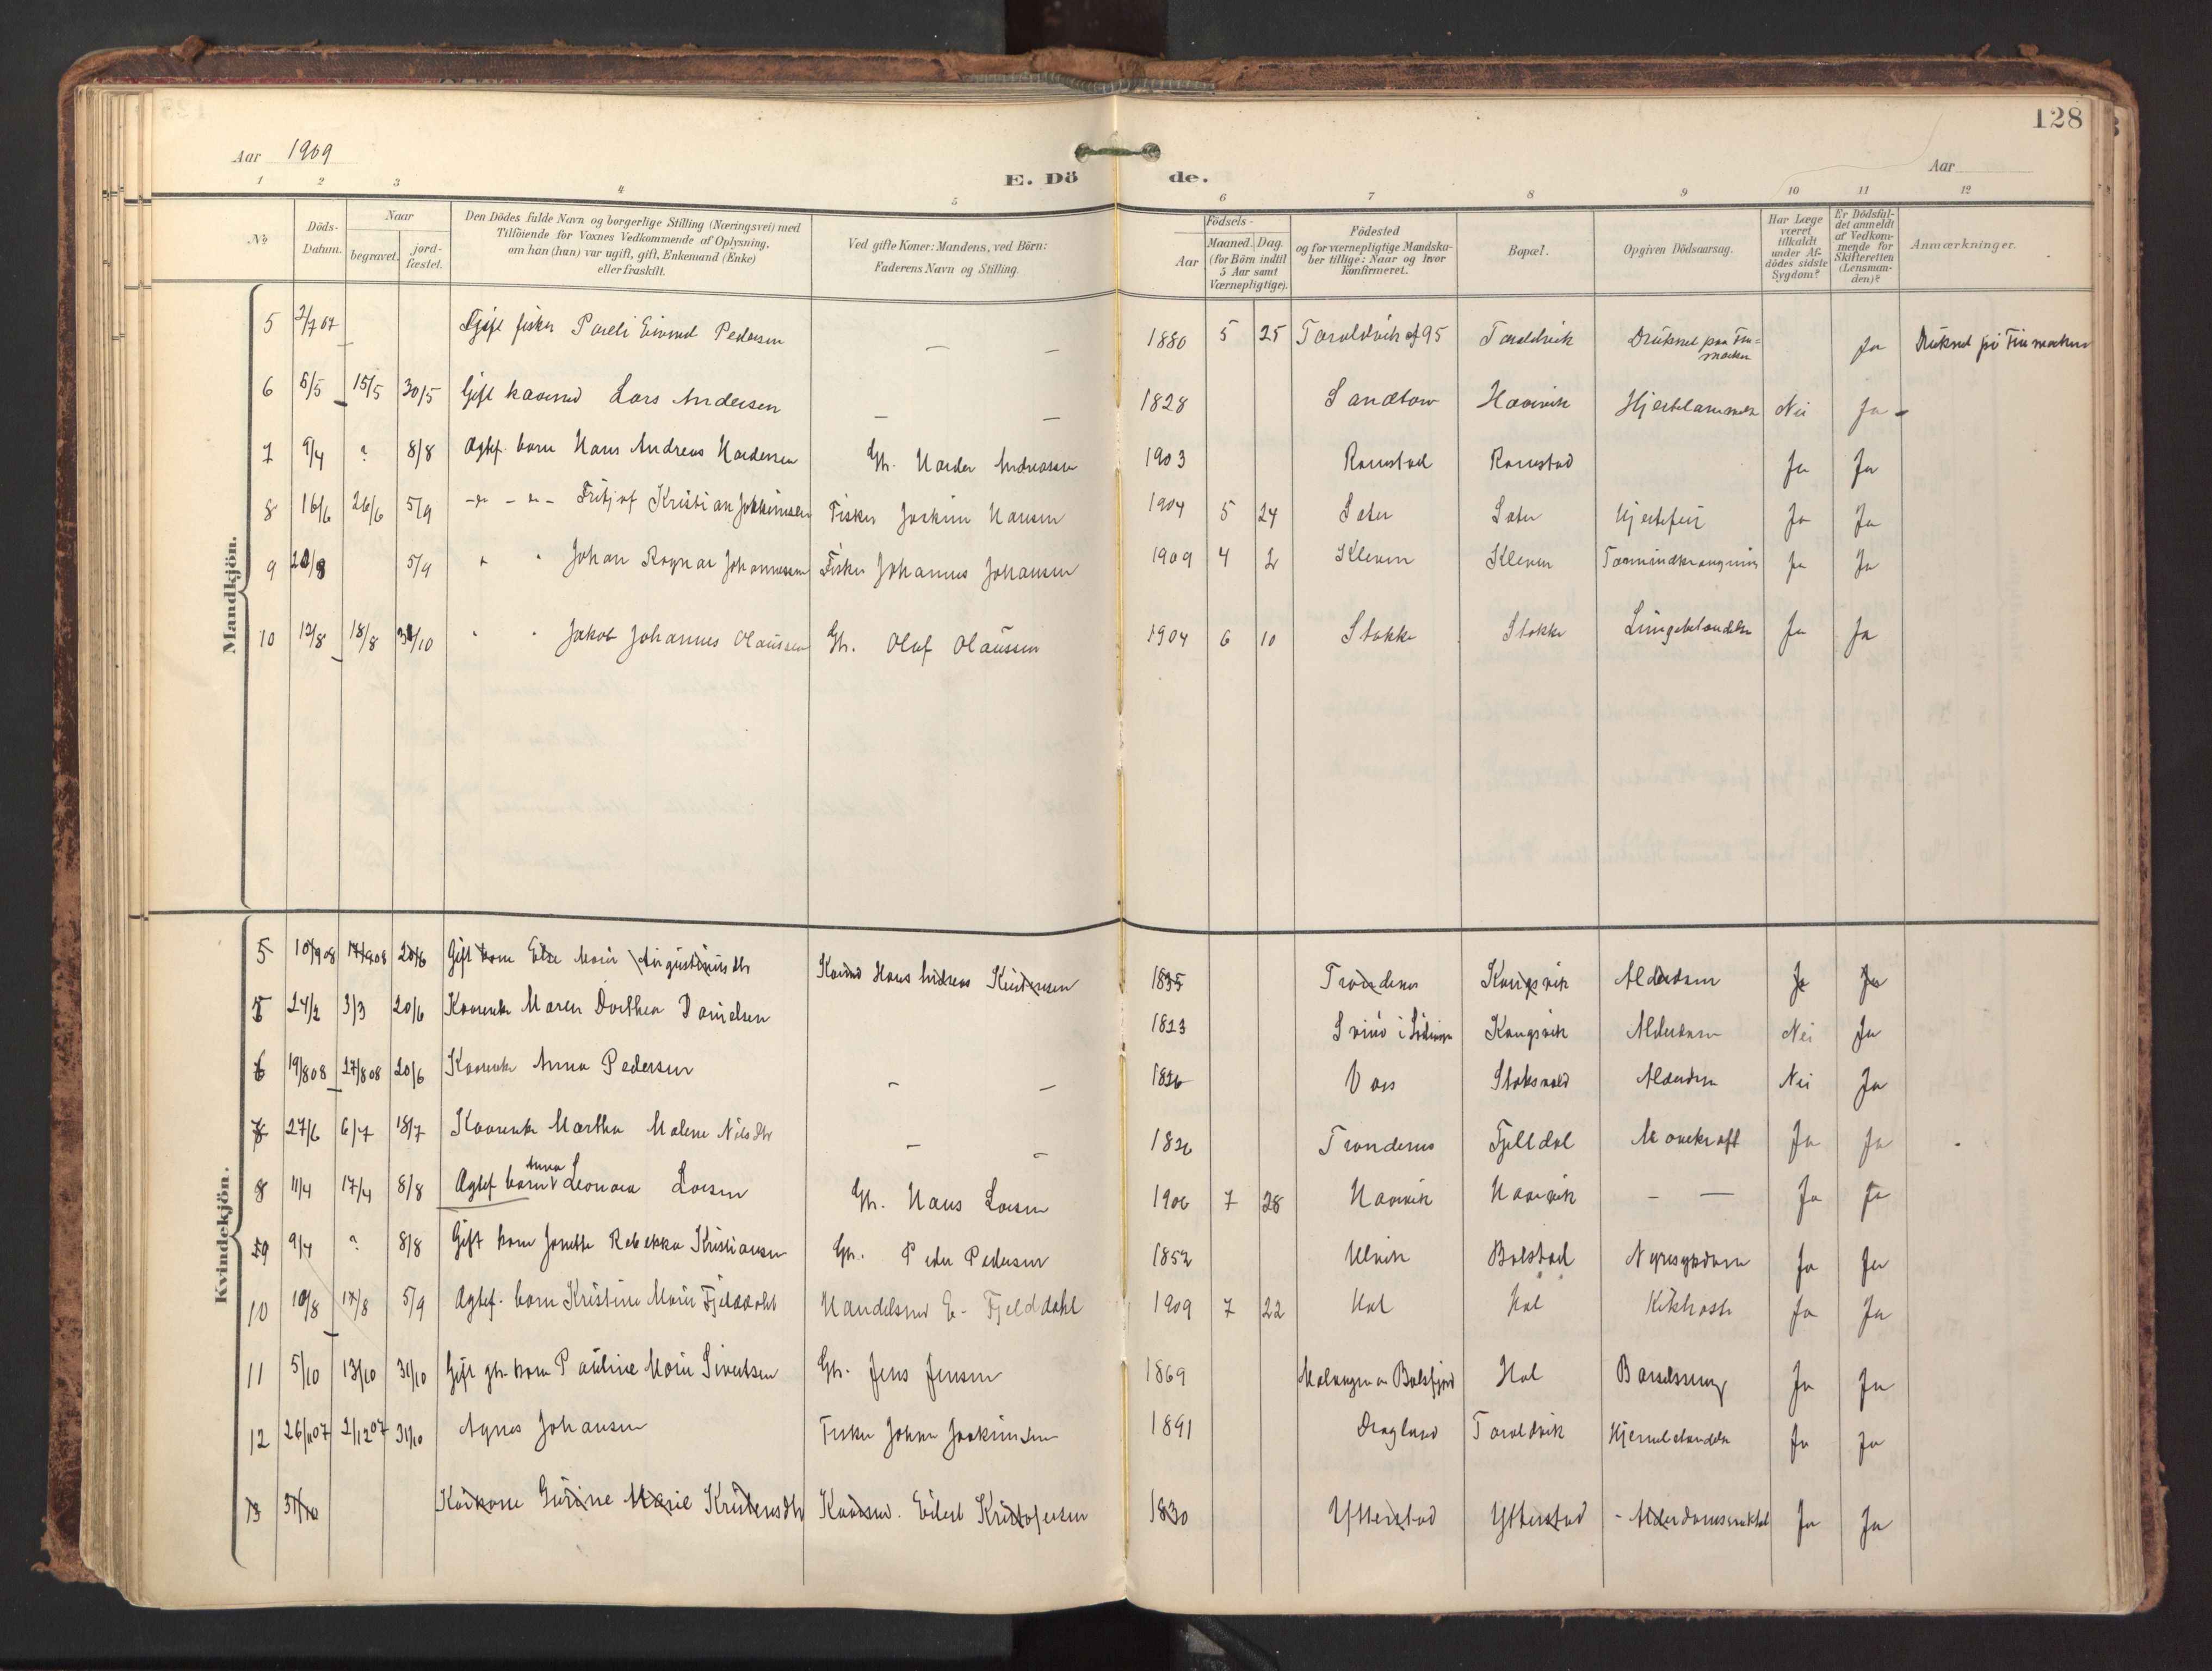 128
Aar 1909
Aar
E. Döde.
1 2 3 4 5 6 7 8 9 10 11 12
No
Döds-Datum.
Naar
begravet.
jord-fæstet.
Den Dödes fulde Navn og borgerlige Stilling (Næringsvei) med
Tilföiende for Voxnes Vedkommende af Oplysning,
om han (hun) var ugift, gift, Enkemand (Enke)
eller fraskilt.
Ved gifte Koner: Mandens, ved Börn:
Faderens Navn og Stilling.
Födsels-
Aar
Maaned. Dag.
(for Börn indtil
5 Aar samt
Værnepligtige).
Födested
og for værnepligtige Mandska-
ber tillige: Naar og hvor
konfirmeret.
Bopæl.
Opgiven Dödsaarsag.
Har Læge
været
tilkaldt
under Af-
dödes sidste
Sygdom?
Er Dödsfal-
det anmeldt
af Vedkom-
mende for
Skifteretten
(Lensman-
den)?
Anmærkninger.
Mandkjön.
5 2/7 07 fisker Pareli Eivind Pedersen — — 1880 5 25 Taraldvik Taraldvik Druknet paa Fin-
marken Ja Druknet på Finmarken
6 6/5 15/5 30/5 Gift Lars Andersen — — 1828 Sandtorv Haarvik Nei Ja
7 9/4 ? 8/8 Ægtef. barn Hans Andreas Gb. 1903 Ramstad Ramstad Ja Ja
8 16/6 26/6 5/9 Fritjof Kristian Joakimsen Fisker Joakim Hansen 1904 5 24 Sater Sater Hjertefeil Ja Ja
9 20/8 5/9 " " Johan Ragnar Johannessen Fisker Johannes Johansen 1909 4 2 Kleven Kleven Ja Ja
10 12/8 18/8 31/10 " " Jakob Johannes Olaussen Gb. Olaf Olaussen 1904 6 10 Stokke Stokke Lungebetændelse Ja Ja
Kvindekjön.
5 10/9 08 17/9 08 20/6 Gift kone Else Marie Augustinusdtr Hans Andreas Kristensen 1835 Trondenes Kongsvik Alderdom Ja Ja
24/2 3/3 20/6 Kaarenke Maren Dorthea Danielsen 1823 Kongsvik Alderdom Nei Ja
6 19/8 08 27/8 08 20/6 Kaarenke Anna Pedersen — — 1826 Voss Alderdom Nei Ja
7 27/6 6/7 18/7 Kaarenke Martha Malene Nilsdtr — — 1826 Trondenes Fjelldal Mavekræft Ja Ja
8 11/4 17/4 8/8 Ægtef barn Anna Leonora Larsen Gb. Hans Larsen 1906 7 28 Haarvik Haarvik — — Ja Ja
9 9/4 ? 8/8 Gift kone Jonette Rebekka Kristiansen Gb. Peder Pedersen 1852 Ulvik Balstad Nyresygdom Ja Ja
10 10/8 17/8 5/9 Ægtef. barn Kristine Marie Fjelddahl Handelsmd E. Fjelddahl 1909 7 22 Hol Hol Kikhoste Ja Ja
11 5/10 13/10 31/10 Gift gb. kone Pauline Marie Sivertsen Gb. Jens Jensen 1869 Malangen Balsfjord Hol Barselseng Ja Ja
12 26/11 07 2/12 07 31/10 Agnes Johansen Fisker Johan Joakimsen 1891 Dragland Taraldvik Hjernebetændelse Ja Ja
13 31/10 Gurine Marie Kristensdtr Eilert Kristofersen 1830 Ytterstad Ytterstad Ja Ja